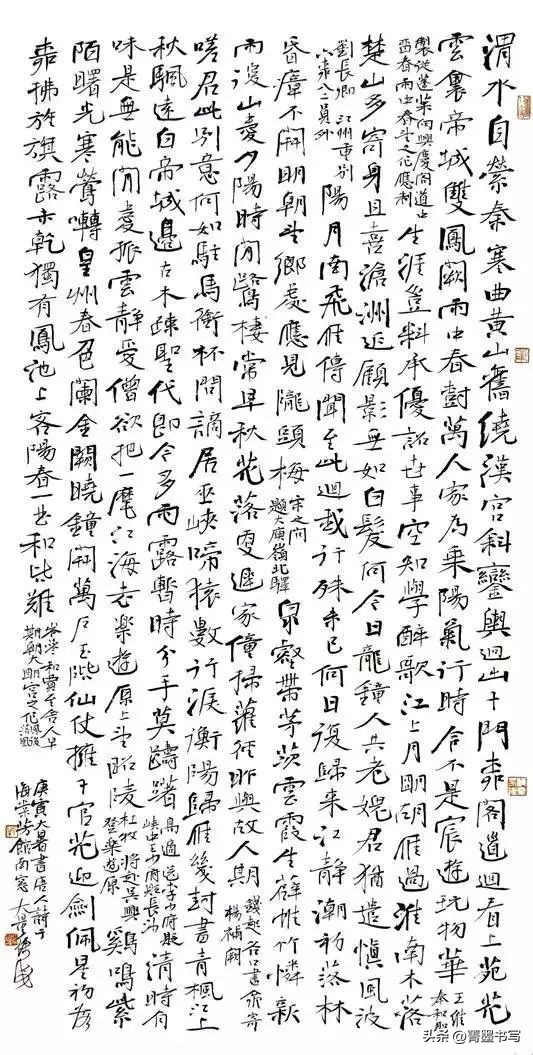 渭水自縈秦塞曲黃山舊繞漢宮斜鑾輿迥出千門柳閣道迴看上苑花
雲裏帝城雙鳳闕雨中春樹萬人家為乘陽氣行時令不是宸遊玩物華
王維
奉和聖
製從蓬萊向興慶閣道中
留春雨中春望之作應制
生涯豈料承優詔世事空知學醉歌江上月明胡雁過淮南木落
楚山多寄身且喜滄洲近顧影無如白髮何今日龍鐘人共老媿君猶遣慎風波
劉長卿江州重別
六柳八二員外
陽月南飛雁傳聞至此迴我行殊未已何日復歸來江靜潮初落林
昏瘴不開明朝望鄉處應見隴頭梅
宋之問
題大庾嶺北驛
泉壑帶茅茨雲霞生薜帷竹憐新
雨後山愛夕陽時閒鷺棲常早秋花落更遲家僮掃蘿徑昨與故人期
錢起谷口書齋寄
楊補闕
嗟君此別意何如駐馬銜杯問謫居巫峽啼猿數行淚衡陽歸雁幾封書青楓江上
秋颿遠白帝城邊古木疎聖代即今多雨露暫時分手莫躊躇
高適送李少府貶
峽中王少府貶長沙
清時有
味是無能閒愛孤雲靜愛僧欲把一麾江海去樂遊原上望昭陵
杜牧將赴吳興
登樂遊原
雞鳴紫
陌曙光寒鶯囀皇州春色闌金闕曉鐘開萬戶玉階仙仗擁千官花迎劍佩星初落
柳拂旌旗露未乾獨有鳳池上客陽春一曲和皆難
岑參和賈至舍人早
朝大明宮之作
庚寅大暑書唐人詩于
海棠芳館南窗
头条 @菁墨书写